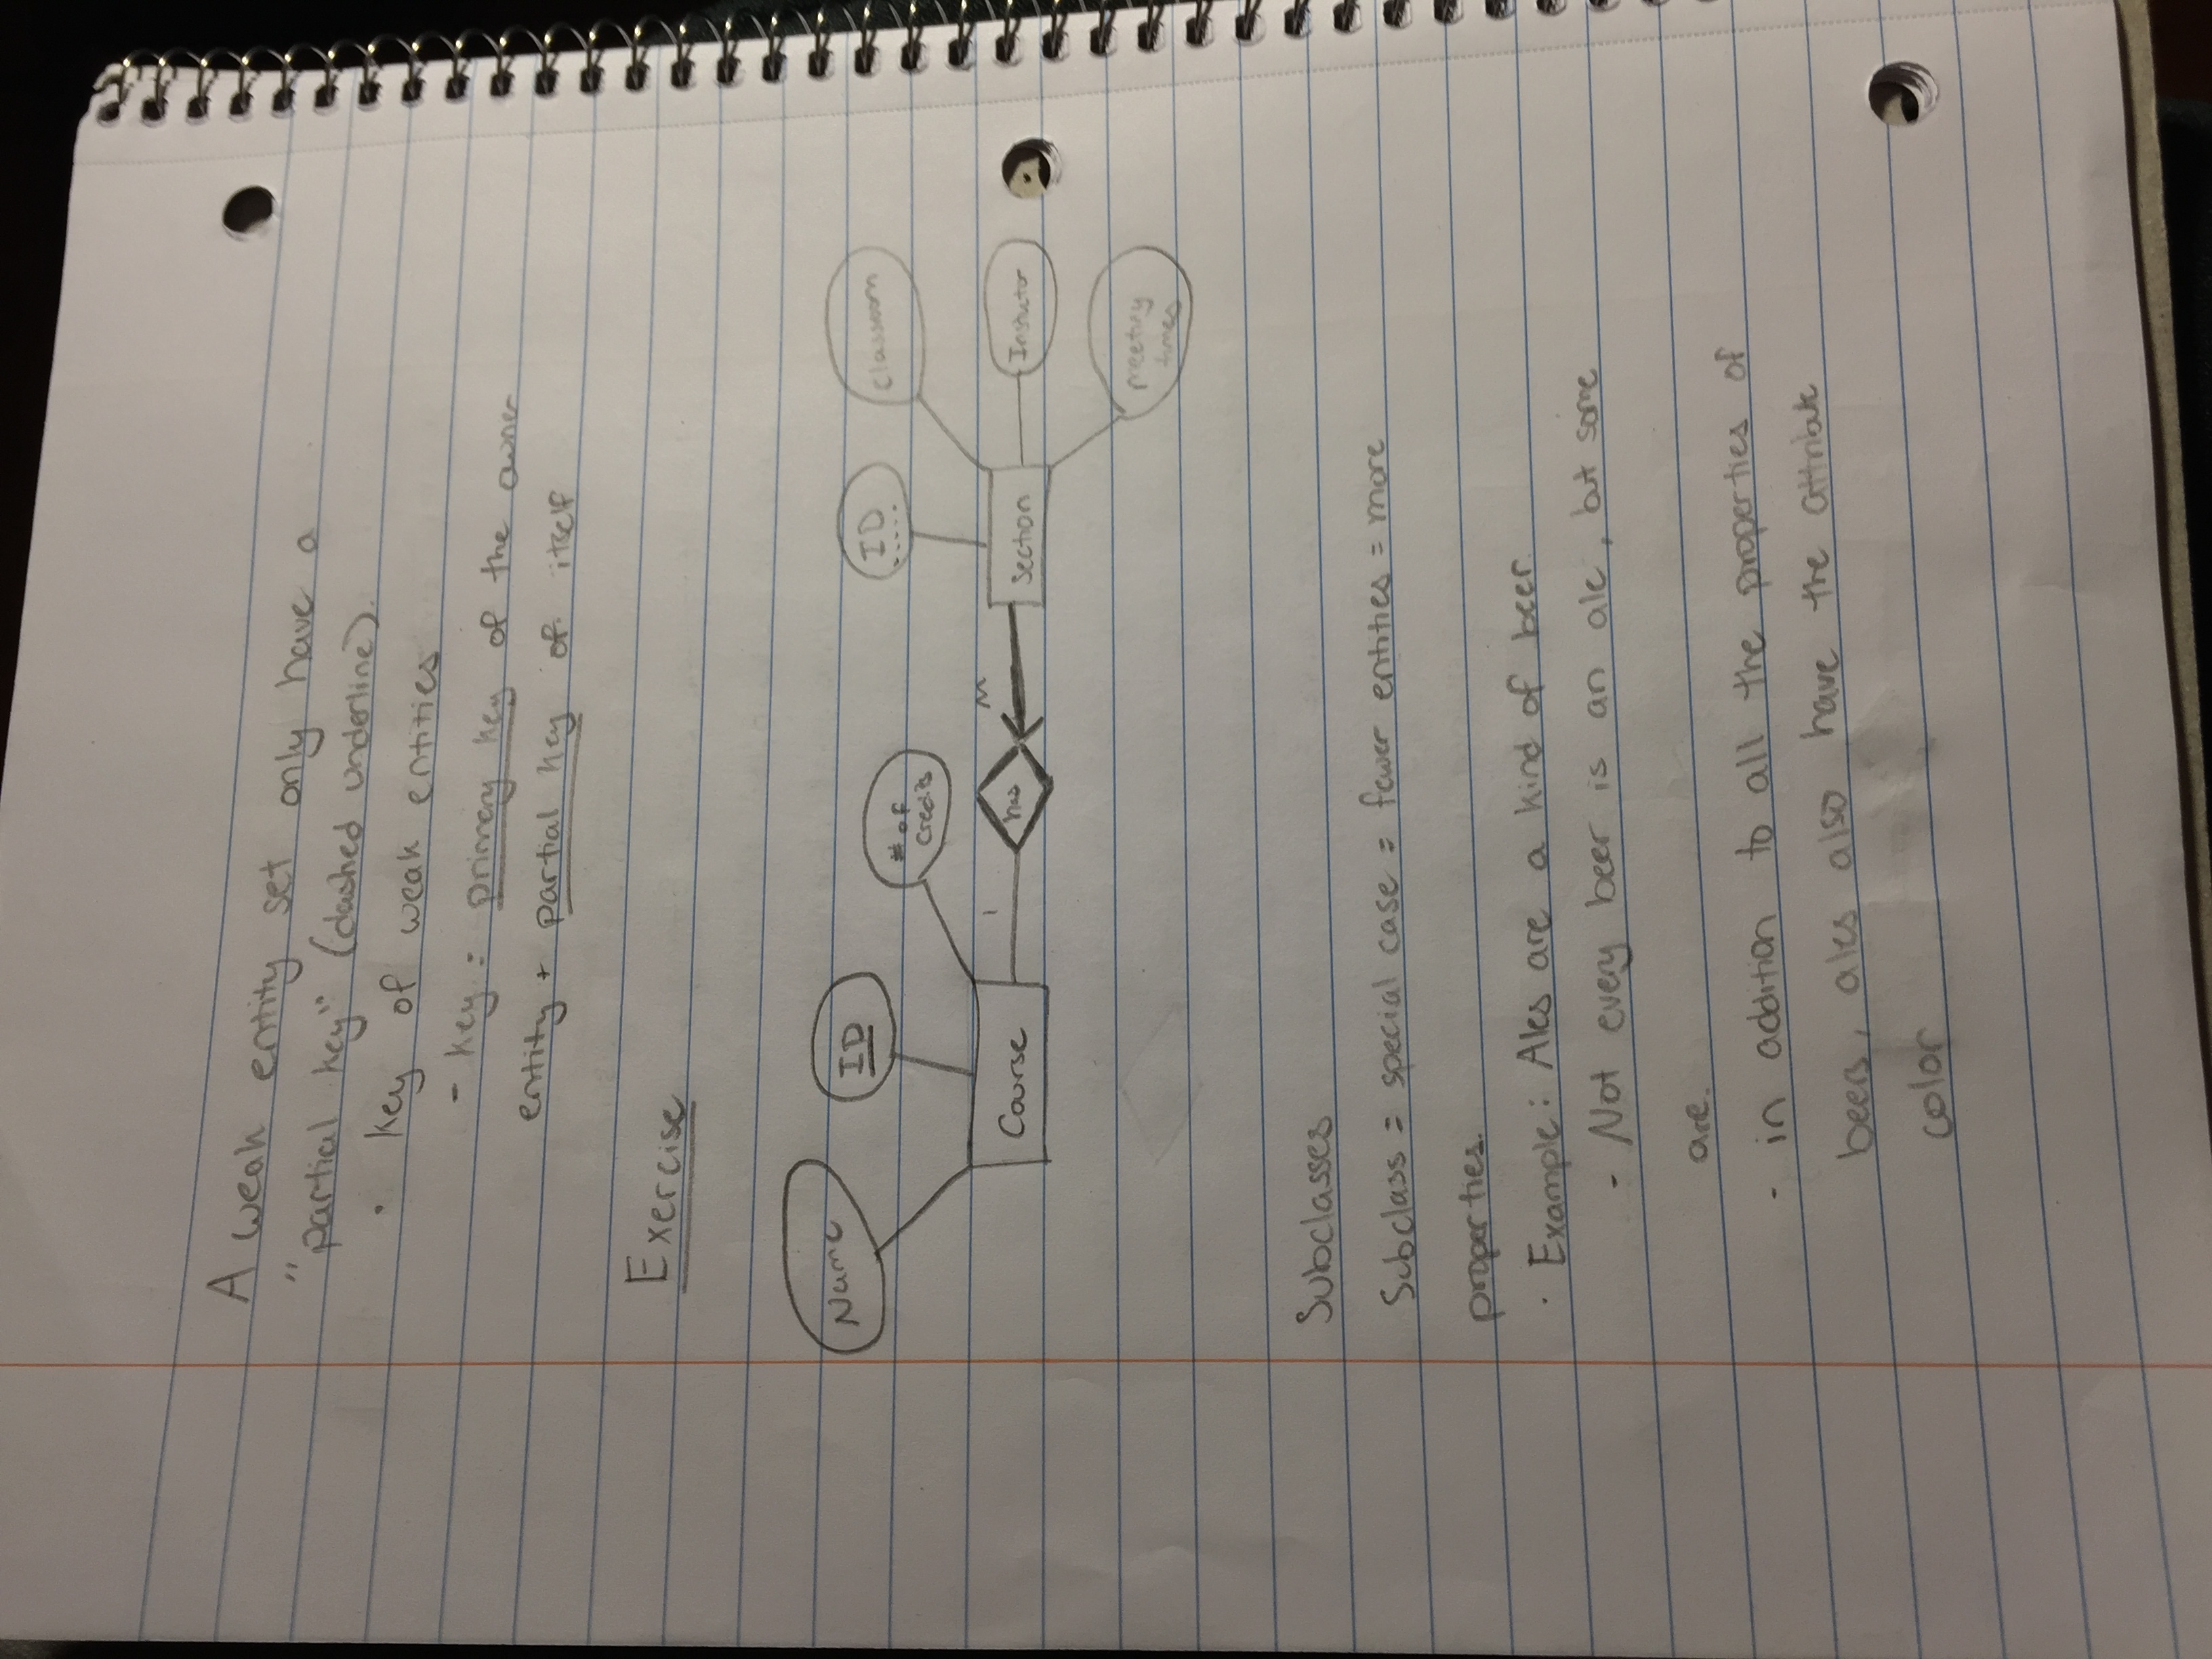 A weak entity set only have a
"partial key" (dashed underline).
· Key of weak entities
- Key : primary key of the owner
entity + partial key of itself
Exercise
Name
ID
# of
credits
ID
Classroom
Course
1
has
M
Section
Instutor
meeting
times
Subclasses
Subclass = special case = fewer entities = more
properties.
· Example: Ales are a kind of beer.
- Not every beer is an ale, but some
are.
- in addition to all the properties of
beers, ales also have the attribute
color